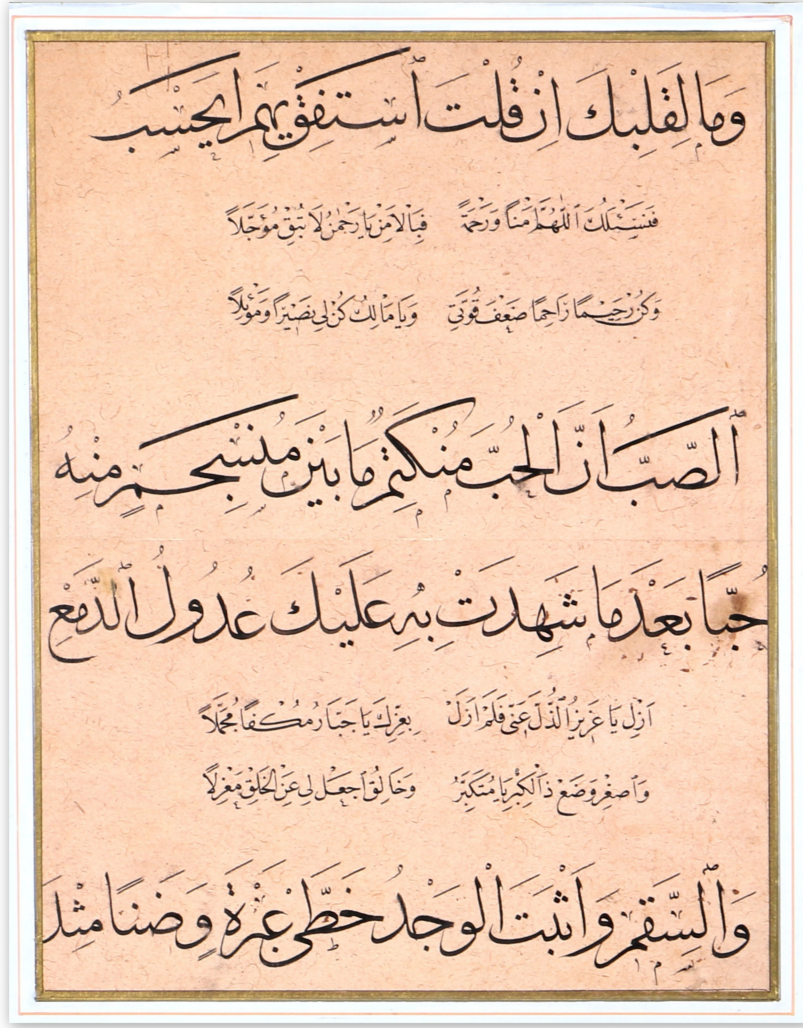 وَمَا لِقَلْبِكَ اِنْ قُلْتَ ٱسْتَفِقْ يَهِمِ اَيَحْسَبُ
فَنَسْئَلُكَ ٱللّٰهُمَّ مَنًّا وَرَحْمَةً فَبِالْاَمْنِ يَا رَحْمٰنُ لَا تُبْقِ مُؤَجَّلًا
وَكُنْ رَحِيمًا رَاحِمًا ضَعْفَ قُوَّتِي وَيَا مَالِكُ كُنْ لِي نَصِيرًا وَمَوْئِلًا
ٱلصَّبُّ اَنَّ الْحُبَّ مُنْكَتِمٌ مَا بَيْنَ مُنْسَجِمٍ مِنْهُ
حُبًّا بَعْدَ مَا شَهِدَتْ بِهِ عَلَيْكَ عُدُولُ ٱلدَّمْعِ
اَزِلْ يَا عَزِيزُ ٱلذُّلَّ عَنِّي فَلَمْ اَزَلْ بِعِزِّكَ يَا جَبَّارُ مُكْفًا مُجَمَّلًا
وَٱصْغِرْ وَضَعْ ذَا ٱلْكِبْرِ يَا مُتَكَبِّرُ وَخَالِقُ ٱجْعَلْ لِي عَنِ الْخَلْقِ مَعْزِلًا
وَٱلسَّقَمِ وَاَثْبَتَ الْوَجْدُ خَطَّيْ عَبْرَةٍ وَضَنًا مِثْلَ